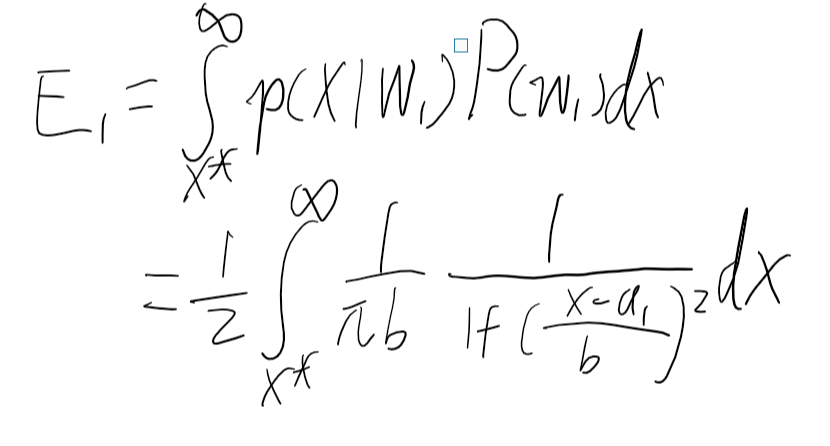 E₁ = ∫_{x*}^{∞} p(x|w₁)P(w₁)dx
= \frac{1}{2} ∫_{x*}^{∞} \frac{1}{πb} \frac{1}{1+(\frac{x-a₁}{b})²} dx